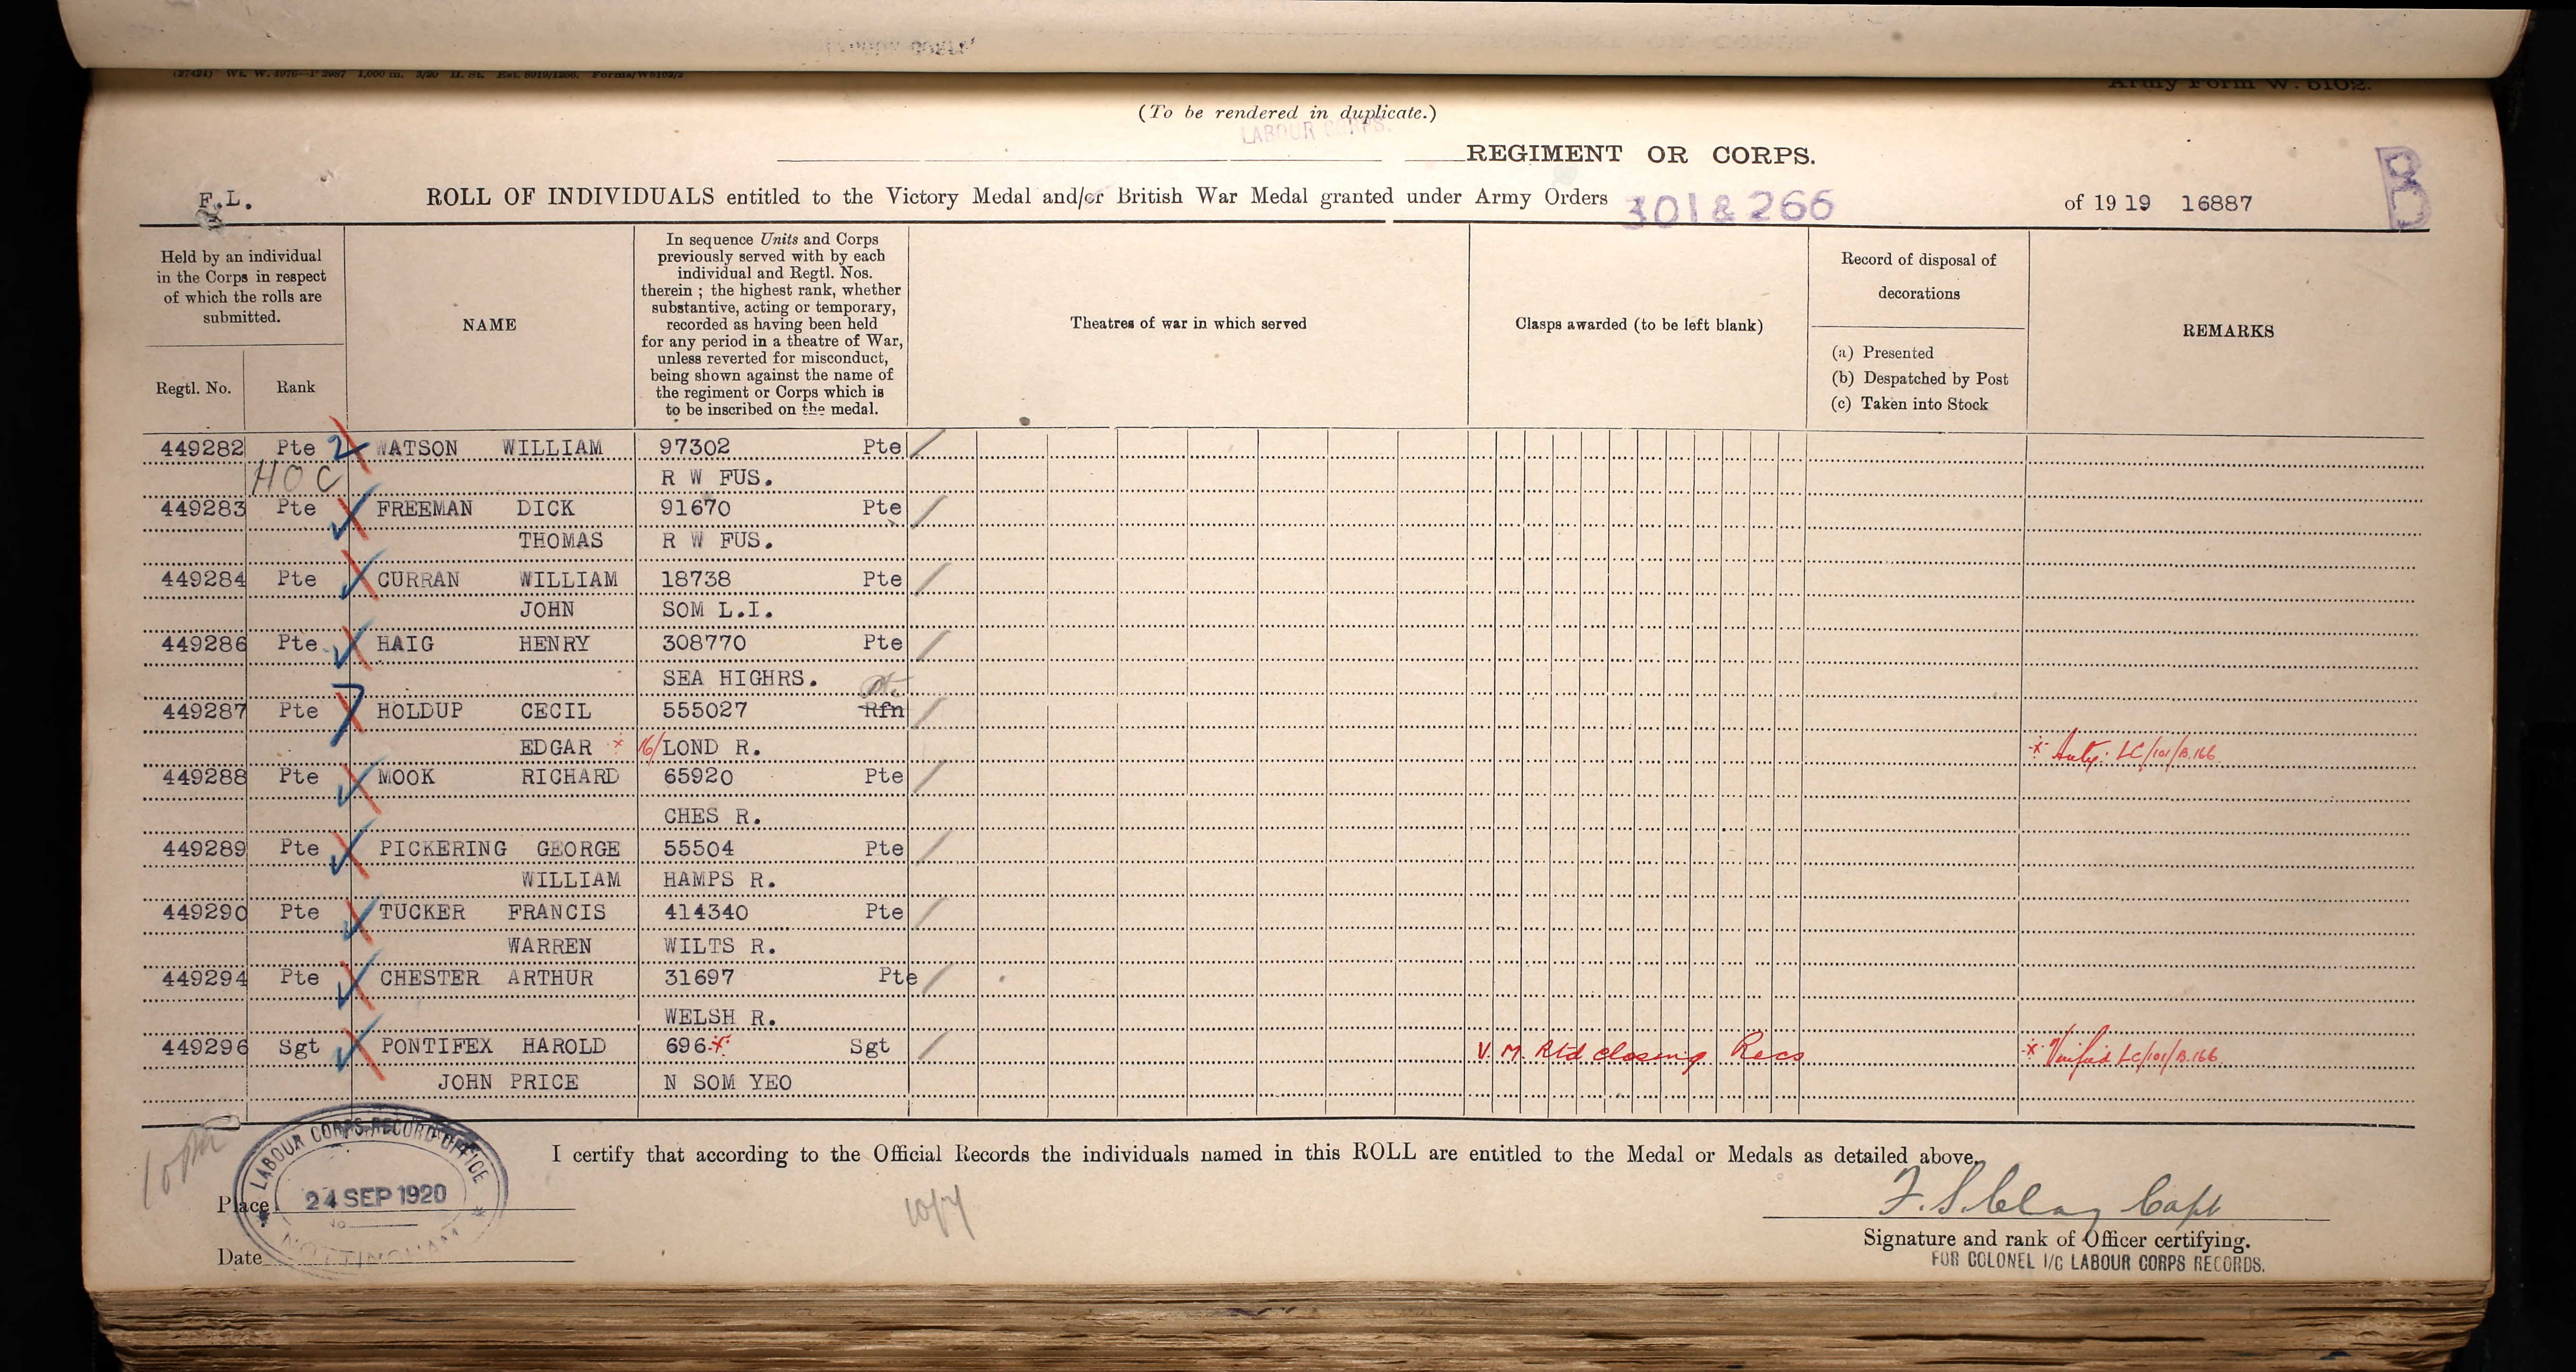 (27424) Wt. W. 4976—P 2987 1,000 m. 3/20 H. St. Est. 8919/1266. Forms/W5102/2
Army Form W. 5102.
(To be rendered in duplicate.)
LABOUR CORPS.
REGIMENT OR CORPS.
B
F.L. ROLL OF INDIVIDUALS entitled to the Victory Medal and/or British War Medal granted under Army Orders 301 & 266 of 19 19 16887
Held by an individual
in the Corps in respect
of which the rolls are
submitted.
Regtl. No. Rank
NAME
In sequence Units and Corps
previously served with by each
individual and Regtl. Nos.
therein ; the highest rank, whether
substantive, acting or temporary,
recorded as having been held
for any period in a theatre of War,
unless reverted for misconduct,
being shown against the name of
the regiment or Corps which is
to be inscribed on the medal.
Theatres of war in which served
Clasps awarded (to be left blank)
Record of disposal of
decorations
(a) Presented
(b) Despatched by Post
(c) Taken into Stock
REMARKS
449282 Pte 2 WATSON WILLIAM 97302 Pte
HOC R W FUS.
449283 Pte FREEMAN DICK 91670 Pte
THOMAS R W FUS.
449284 Pte CURRAN WILLIAM 18738 Pte
JOHN SOM L.I.
449286 Pte HAIG HENRY 308770 Pte
SEA HIGHRS.
Pte.
449287 Pte 7 HOLDUP CECIL 555027 Rfn
EDGAR × 16/ LOND R. × Auty. LC/101/B.166.
449288 Pte MOOK RICHARD 65920 Pte
CHES R.
449289 Pte PICKERING GEORGE 55504 Pte
WILLIAM HAMPS R.
449290 Pte TUCKER FRANCIS 414340 Pte
WARREN WILTS R.
449294 Pte CHESTER ARTHUR 31697 Pte
WELSH R.
449296 Sgt PONTIFEX HAROLD 696 × Sgt V. M. Rtd closing Recs × Verified LC/101/B.166.
JOHN PRICE N SOM YEO
I certify that according to the Official Records the individuals named in this ROLL are entitled to the Medal or Medals as detailed above.
LABOUR CORPS RECORD OFFICE
24 SEP 1920
No
NOTTINGHAM
Place
Date
F. S. Clay Capt
Signature and rank of Officer certifying.
FOR COLONEL I/C LABOUR CORPS RECORDS.